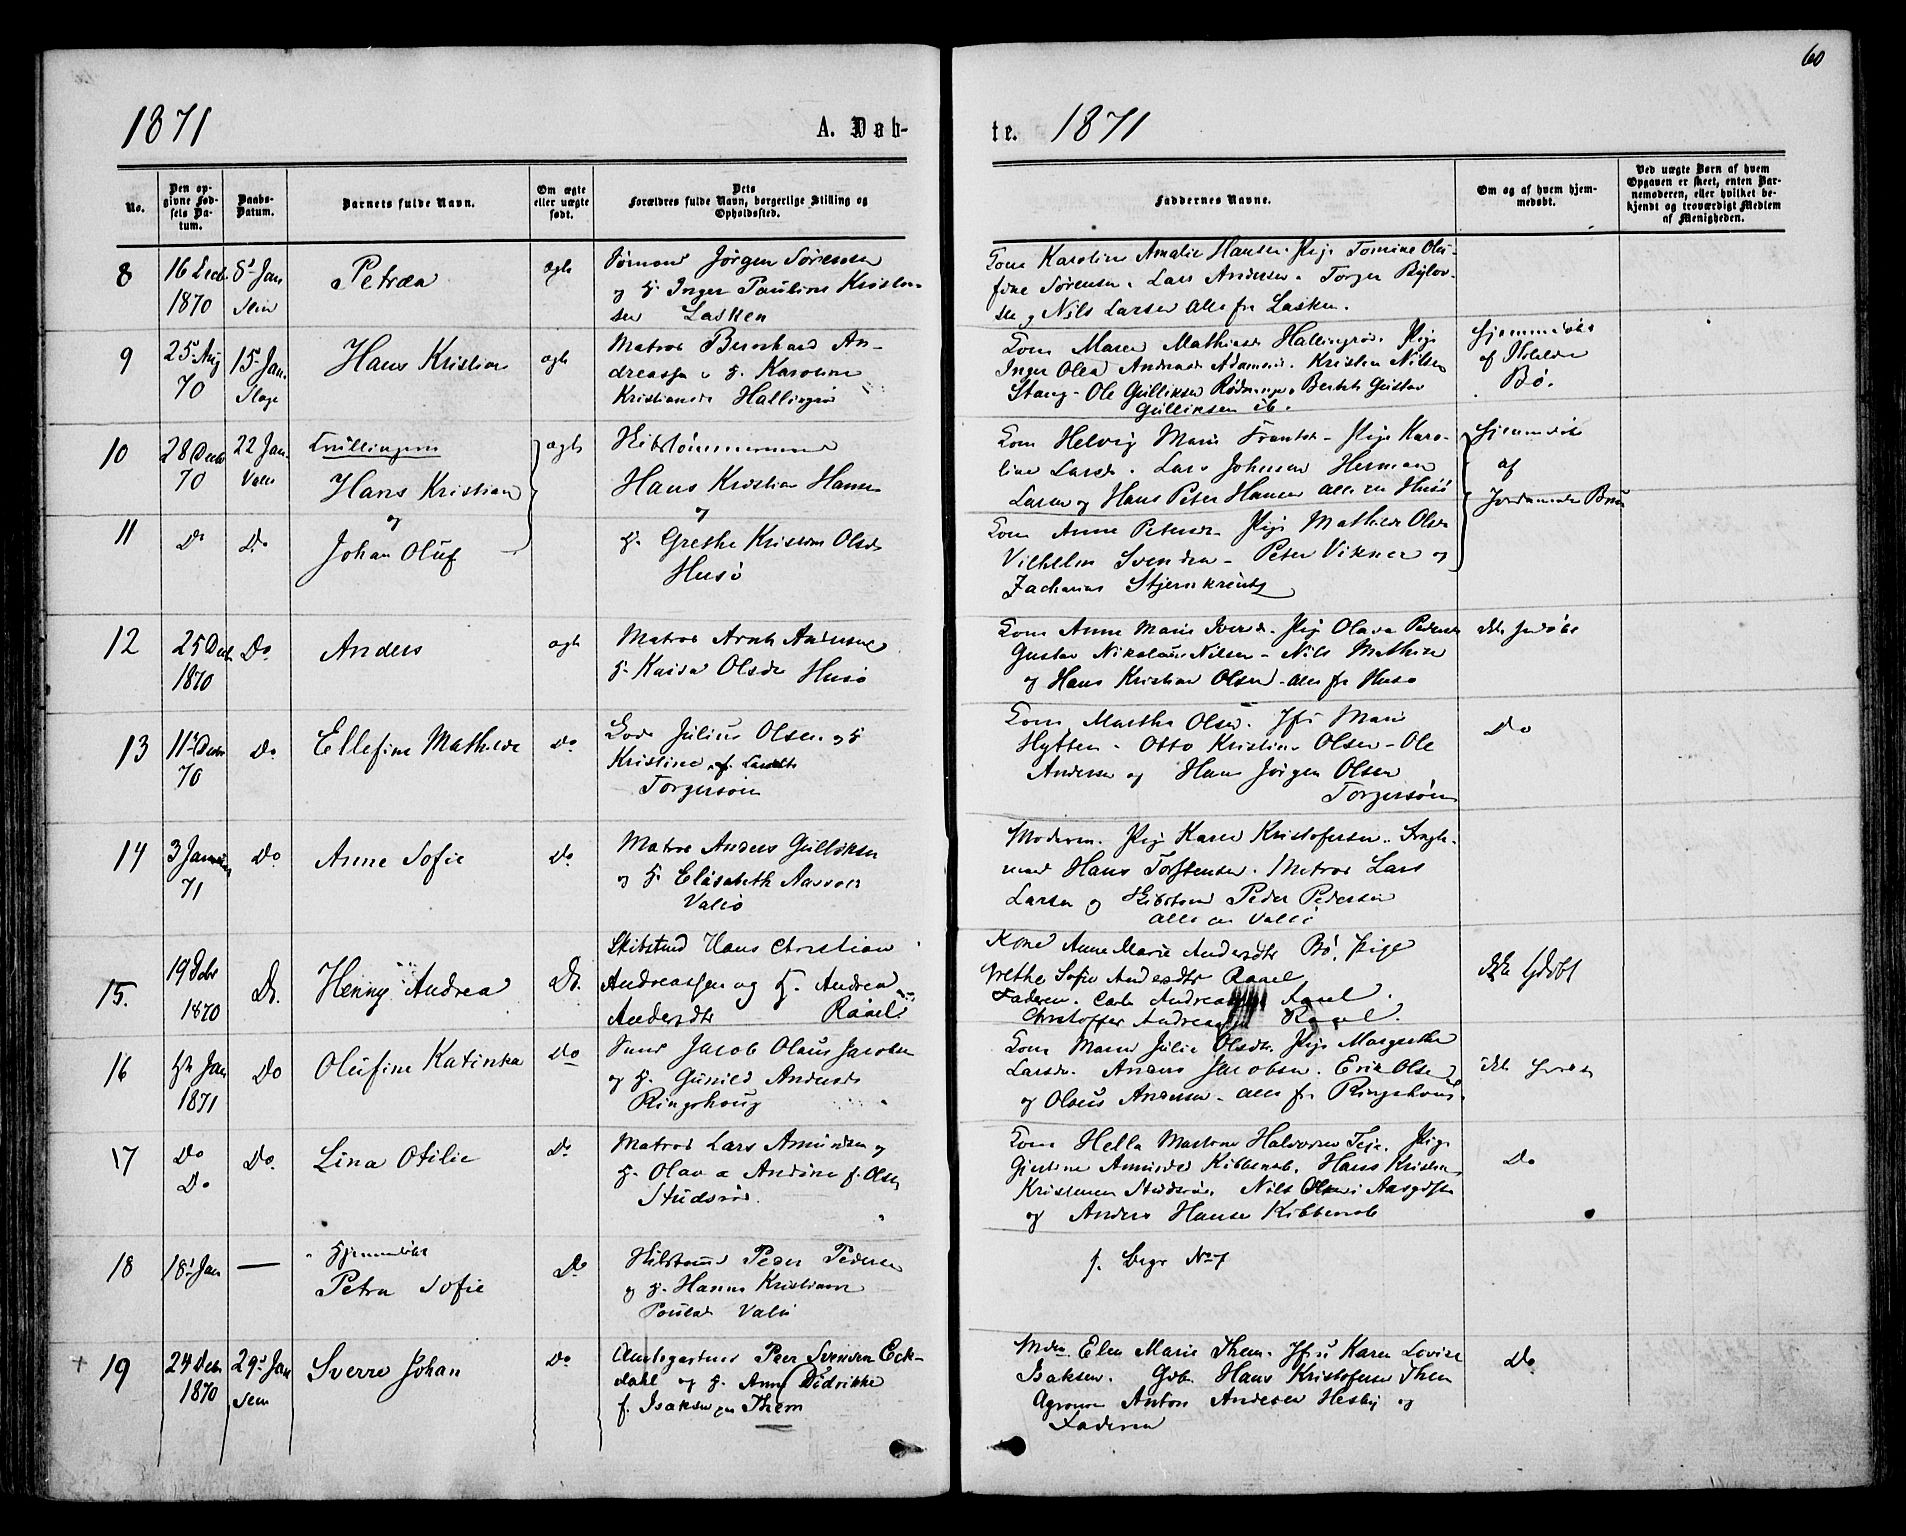 60
1871 A. Døb- te. 1871
No.
Den op-
givne Fød-
sels Da-
tum.
Daabs-
Datum.
Barnets fulde Navn.
Om ægte
eller uægte
født.
Dets
Forældres fulde Navn, borgerlige Stilling og
Opholdssted.
Faddernes Navne.
Om og af hvem hjem-
medøbt.
Ved uægte Børn af hvem
Opgaven er skeet, enten Bar-
nemoderen, eller hvilket be-
kjendt og troværdigt Medlem
af Menigheden.
8 16 Decb 1870 8d Jan Sem
Petræa
ægte
Sømand Jørgen Sørensen
og H. Inger Pauline Kristen-
sen Lasken
Kone Karoline Amalie Hansen. Pige Tomine Olu-
fine Sørensen. Lars Andersen. Torger
og Nils Larsen alle fr Lasken.
9 25 Aug 70 15 Jan. Slage
Hans Kristian
ægte
Matros Bernhard An-
dreassen og H. Karoline
Kristiansd Hallingrø
Kone Maren Mathiasd Hallingrød. Pige
Inger Olea Andreasd. Kristen Nilsen
Stang - Ole Gulliksen Rødninge. Gustav
Gulliksen ib.
Hjemmedøbt
af
Bø.
10 28 Decb 70 22 Jan. Vallø
Tvillingerne
Hans Kristian
og
ægte
Skibstømmermand
Hans Kristian Hansen
og
Kone Helvig Marie Frantsd - Pige Karo-
line Larsd. Lars Johnsen Herman
Larsen og Hans Peter Hansen alle fr Husø
Hjemmedøbt
af
Jordemoder
11 Do Do
Johan Oluf
H. Grethe Kristine Olsd
Husø
Kone Anne Petersd. Pige Mathilde Olsd
Vilhelm Svendsen - Peter Vikner og
Zacharias Stjernkreutz
12 25 Decb. 1870 Do
Anders
ægte
Matros Arnt Andersen
H. Kaisa Olsdr Husø
Kone Anne Marie Iversd. Pige Olava Pedersd
Gustav Nikolai Nilsen - Nils Mathisen
og Hans Kristian Olsen - alle fr Husø
ikke hjdøbt
13 11 Decbr 70 Do
Ellefine Mathilde
Do
Julius Olsen og H
Kristine f. Larsdtr
Torgersøen
Kone Martha Olsen. Jfr Marie
Hytten - Otto Kristian Olsen - Ole
Andersen og Hans Jørgen Olsen
Torgersøen
Do
14 3 Januar 71 Do
Anne Sofie
Do
Matros Anders Gulliksen
og H Elisabeth
Vallø
Moderen. Pige Karen Kristofersen.
Hans Torstensen. Matros Lars
Larsen og Skibstmd Peder Pedersen
alle fr Vallø
15. 19 Debr 1870 Do.
Henny Andrea
Do.
Skibstmd Hans Christian
Andreassen og H. Andrea
Andersdtr Raael
Kone Anne Marie Andersdtr Bø. Pige
Grethe Sofie Andersdtr Raael
Faderen. Carl Andreassen Raael.
Christoffer Andreassen Raael.
Ikke hjdøbt
16 4de Jan 1871 Do
Olufine Katinka
Do
Jacob Olaus Jacobsen
og H. Gunild Andersd
Ringshoug
Kone Maren Julie Olsdtr. Pige Margrethe
Larsdr. Anders Jacobsen. Erik Olsen
og Olaus Andersen - alle fr Ringshoug.
ikke hjemdøbt
17 Do Do Do.
Lina Otilie
Do
Matros Lars Amundsen og
H. Olava Andine f. Olsen
Studsrød.
Kone Hella Martone Halvorsen Teie. Pige
Amundsd Kibbenab. Hans Kristen
Kristensen Studsrød. Nils Olsen
og Anders Hansen Kibbenab
Do
18 18d Jan —
Hjemmedøbt
Petra Sofie
Do
Skibstmd Peder Pedersen
og H. Hanna Kristiane
Poulsd Vallø
f. Begr No 7
+ 19 24 Deb. 1870 29d Jan Sem
Sverre Johan
Do
Amtsgartner Peer Svendsen Eck-
dahl og H. Anne Didrikke
f. Isaksen Them
Md. Elen Marie Them. Jfr Karen Lovise
Isaksen. Gdbr. Hans Kristofersen Them
Agronom Anton Andersen Hesby og
Faderen
Do